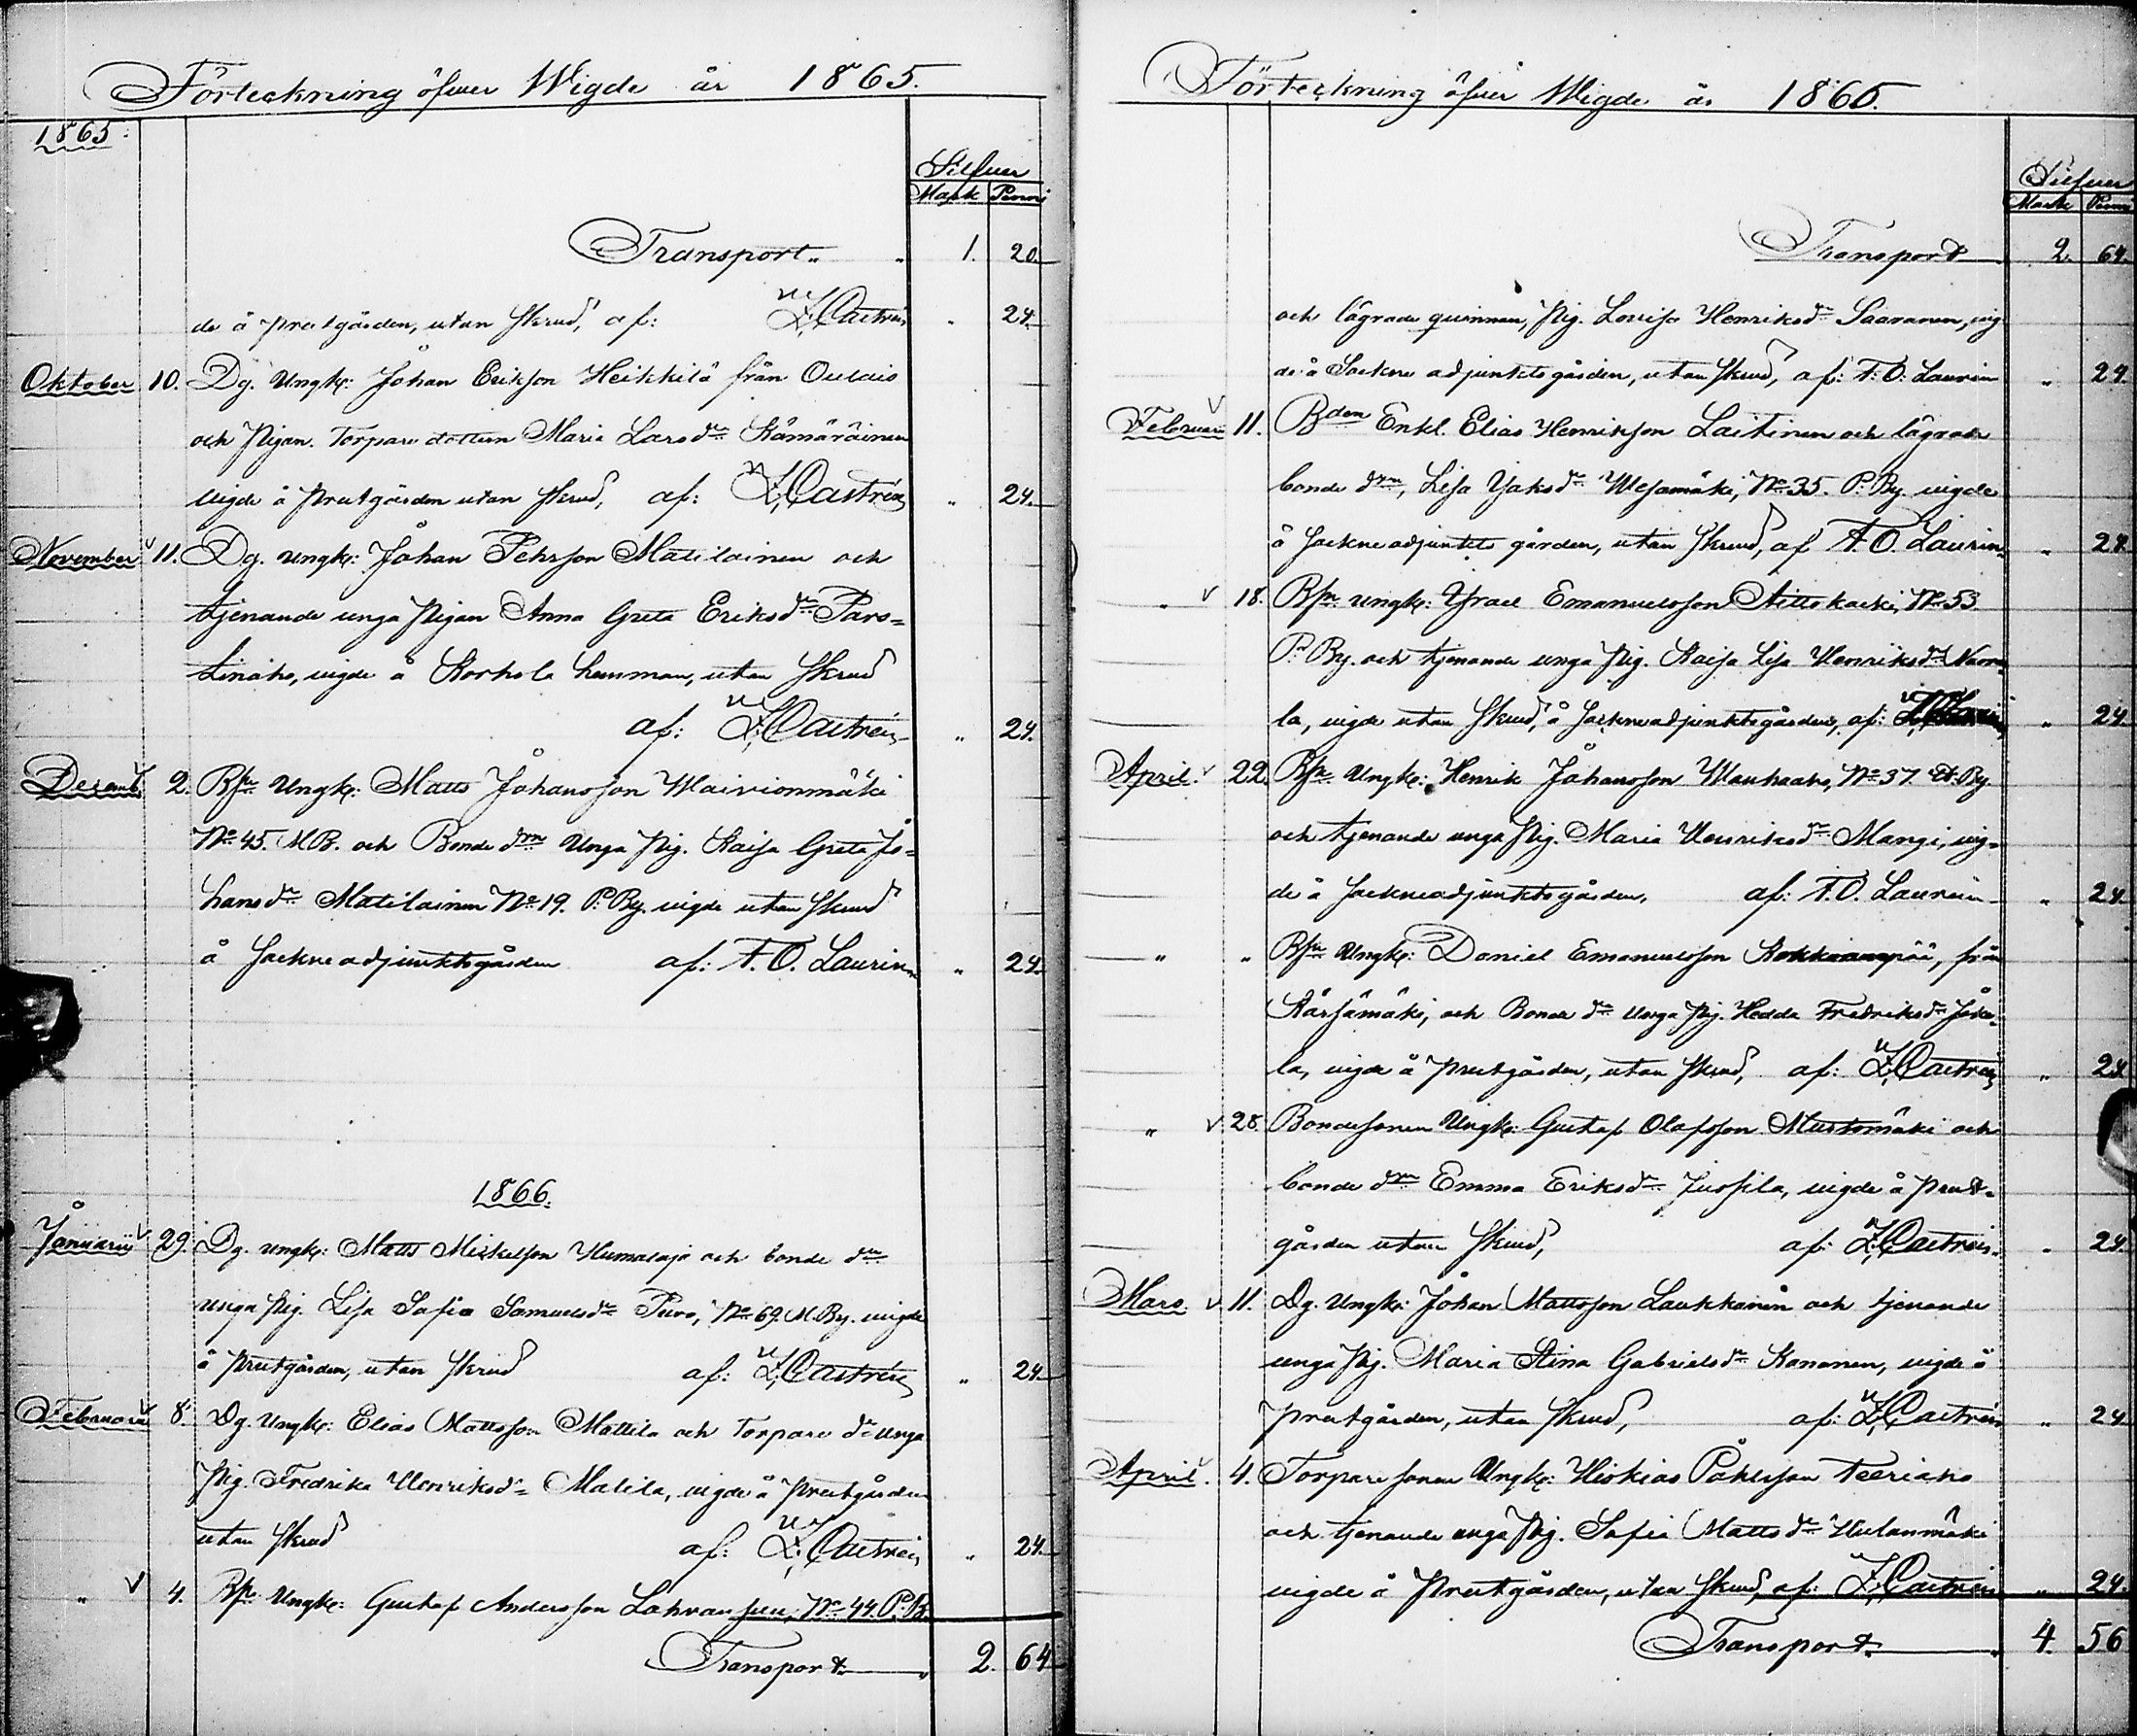 Förteckning öfver Wigde år 1865.
1865.
Silfver
Mark Penni
Transport " 1. 20.
de å prestgården, utan skrud, af: Z. Castrén " 24.
Oktober 10. Dg. Ungk: Johan Eriksson Heikkilä från Oulais
och Pigan. Torpare dottern Maria Larsdr Kämäräinen
vigde å Prestgården utan skrud, af: Z. Castrén " 24.
November 11. Dg. Ungk: Johan Pehrsson Matilainen och
tjenande unga Pigan Anna Greta Eriksdr Pars-
tinaho, vigde å Korhola hemman, utan skrud
af: Z. Castrén " 24.
Decemb. 2. Bsn Ungk: Matts Johansson Maivionmäki
No 45. M.B. och Bonde drn Unga Pig. Kaisa Greta Jo-
hansdr Matilainen No 19. P. By. vigde utan skrud
å Sockneadjunktsgården af: F. O. Laurin " 24.
1866.
Januarii 29. Dg. Ungk: Matts Mickelsson Humalaja och bonde drn
unga Pig. Lisa Safia Samuelsdr Puro, No 69. M. By. vigde
å Prestgården, utan skrud af: Z. Castrén " 24.
Februarii 8. Dg. Ungk: Elias Mattsson Mattila och Torpare dr unga
Pig. Fredrika Henriksdr Matila, vigde å Prestgården
utan skrud af: Z. Castrén " 24.
" 4. Bsn Ungk: Gustaf Andersson No 44. P. B.
Transport " 2. 64
Förteckning öfver Wigde år 1866.
Silfver
Mark Penni
Transport 2. 64.
och lägrade quinnan, Pig. Lovisa Henriksdr Saaranen, vig
de å Sockne adjunktsgården, utan skrud, af: F. O. Laurin " 24.
Februari 11. Bden Enkl. Elias Henriksson Laitinen och lägrade
bonde drn, Lisa Jaksdr Wesamäki, No 35. P. By. vigde
å Sockneadjunkts gården, utan skrud, af F. O. Laurin " 24.
" 18. Bsn Ungk: Israel Emanuelsson Aittokoski, No 53
P. By. och tjenande unga Pig. Kaisa Lisa Henriksdr
la, vigde utan skrud, å Sockneadjunktsgården, af: " 24.
April. 22. Bsn Ungk: Henrik Johansson No 37. By.
och tjenande unga Pig. Maria Henriksdr Mangi, vig-
de å Sockneadjunktsgården, af: F. O. Laurin " 24.
" " Bsn Ungk: Daniel Emanuelsson från
Kärsämäki, och Bonde dr Unga Pig. Hedda Fredriksdr
la, vigde å Prestgården, utan skrud, af: Z. Castrén " 24.
" 28. Bondesonen Ungk: Gustaf Olafsson Mustomäki och
bonde drn Emma Eriksdr Jussila, vigde å Prest-
gården utan skrud, af: Z. Castrén " 24.
Mars. 11. Dg. Ungk: Johan Mattsson Laukkanén och tjenande
unga Pig. Maria Stina Gabrielsdr Kananen, vigde å
prestgården, utan skrud, af: Z. Castrén " 24.
April. 4. Torparesonen Ungk: Hiskias Påhlsson Teeriaho
och tjenande unga Pig. Safia Mattsdr Hulanmäki
vigde å Prestgården, utan skrud, af: Z. Castrén " 24.
Transport. " 4. 56